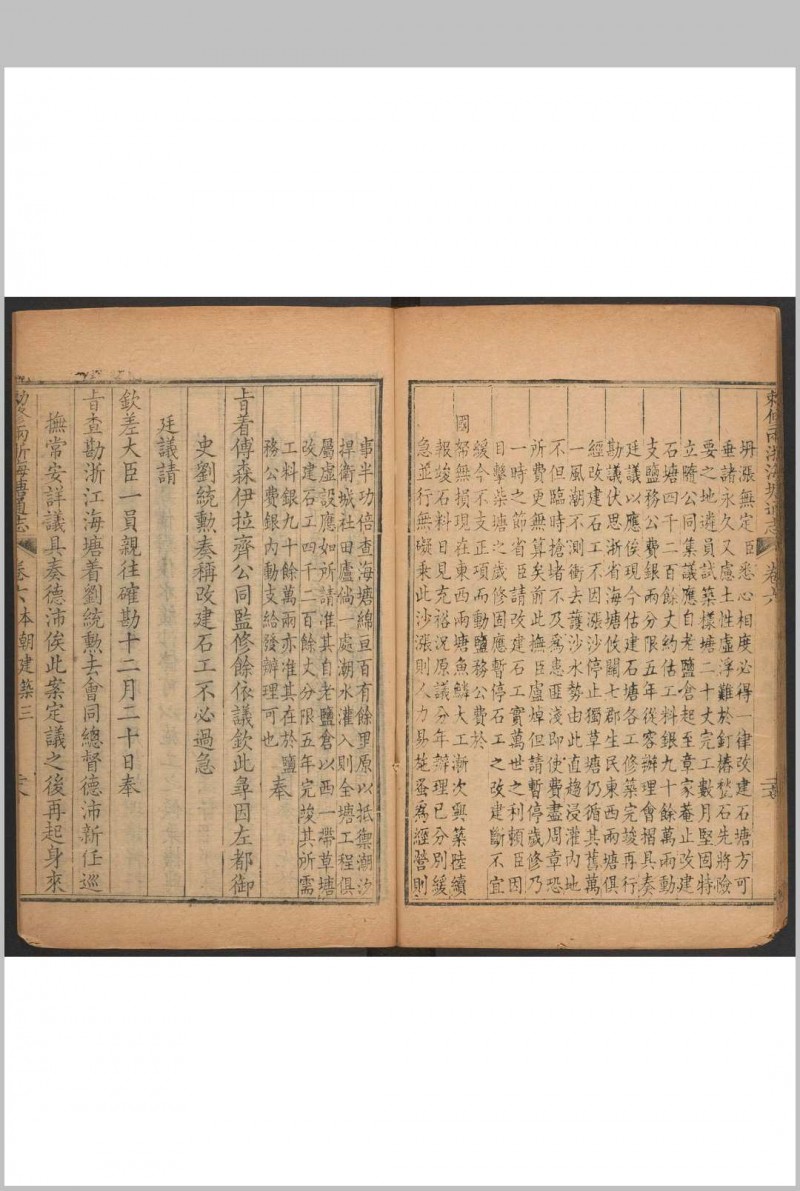 坍漲無定臣悉心相度必得一律改建石塘方可
垂諸永久又慮土性虛浮難於釘樁甃石先將險
要之地遴員試築樣塘二十丈完工數月堅固特
立隨公同集議應自老鹽倉起至章家菴止改建
石塘四千二百餘丈約估工料銀九十餘萬兩動
支鹽務公費銀兩分限五年從容辦理會摺具奏
廷議以應俟現今估建石塘各工修築完竣再行
勘議伏思浙省海塘攸關七郡生民東西兩塘俱
經改建石工不因漲沙停止獨草塘仍循其舊萬
一風潮不測衝去護沙水勢由此直趨浸灌內地
不但臨時搶堵不及爲患匪淺即使費盡周章恐
所費更無算矣前此撫臣盧焯但請暫停歲修乃
一時之節省臣請改建石工實萬世之利賴臣因
目擊柴塘之歲修固應暫停石工之改建斷不宜
緩今不支正項而動鹽務公費於
國帑無損現在東西兩塘魚鱗大工漸次興築陸續
報竣石料日見充裕況原議分年辦理已分別緩
急並行無礙乘此沙漲則人力易施蚤爲經營則
事半功倍查海塘綿亘百有餘里原以抵禦潮汐
捍衛城社田廬倘一處潮水灌入則全塘工程俱
屬虛設應如所請准其自老鹽倉以西一帶草塘
改建石工四千二百餘丈分限五年完竣其所需
工料銀九十餘萬兩亦准其在於鹽
務公費銀內動支給發辦理可也 奉
旨着傅森伊拉齊公同監修餘依議欽此尋因左都御
史劉統勳奏稱改建石工不必過急
廷議請
欽差大臣一員親往確勘十二月二十日奉
旨查勘浙江海塘着劉統勳去會同總督德沛新任巡
撫常安詳議具奏德沛俟此案定議之後再起身來
敕修兩浙海塘通志 卷六 本朝建築三